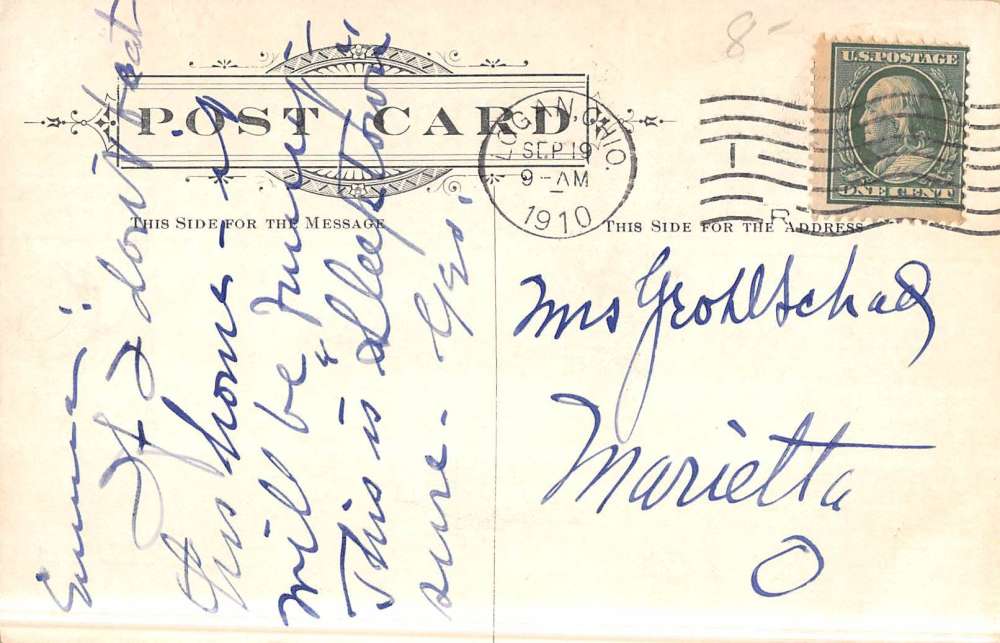 8-
U.S. POSTAGE
ONE CENT
POST CARD
LOGAN, OHIO.
SEP 19
9-AM
1910
THIS SIDE FOR THE MESSAGE
THIS SIDE FOR THE ADDRESS
Mrs Grohlschad
Marietta
O
Emma:
If I don't beat
this home - I
will be "
This is "Sleeptown"
sure. Geo.